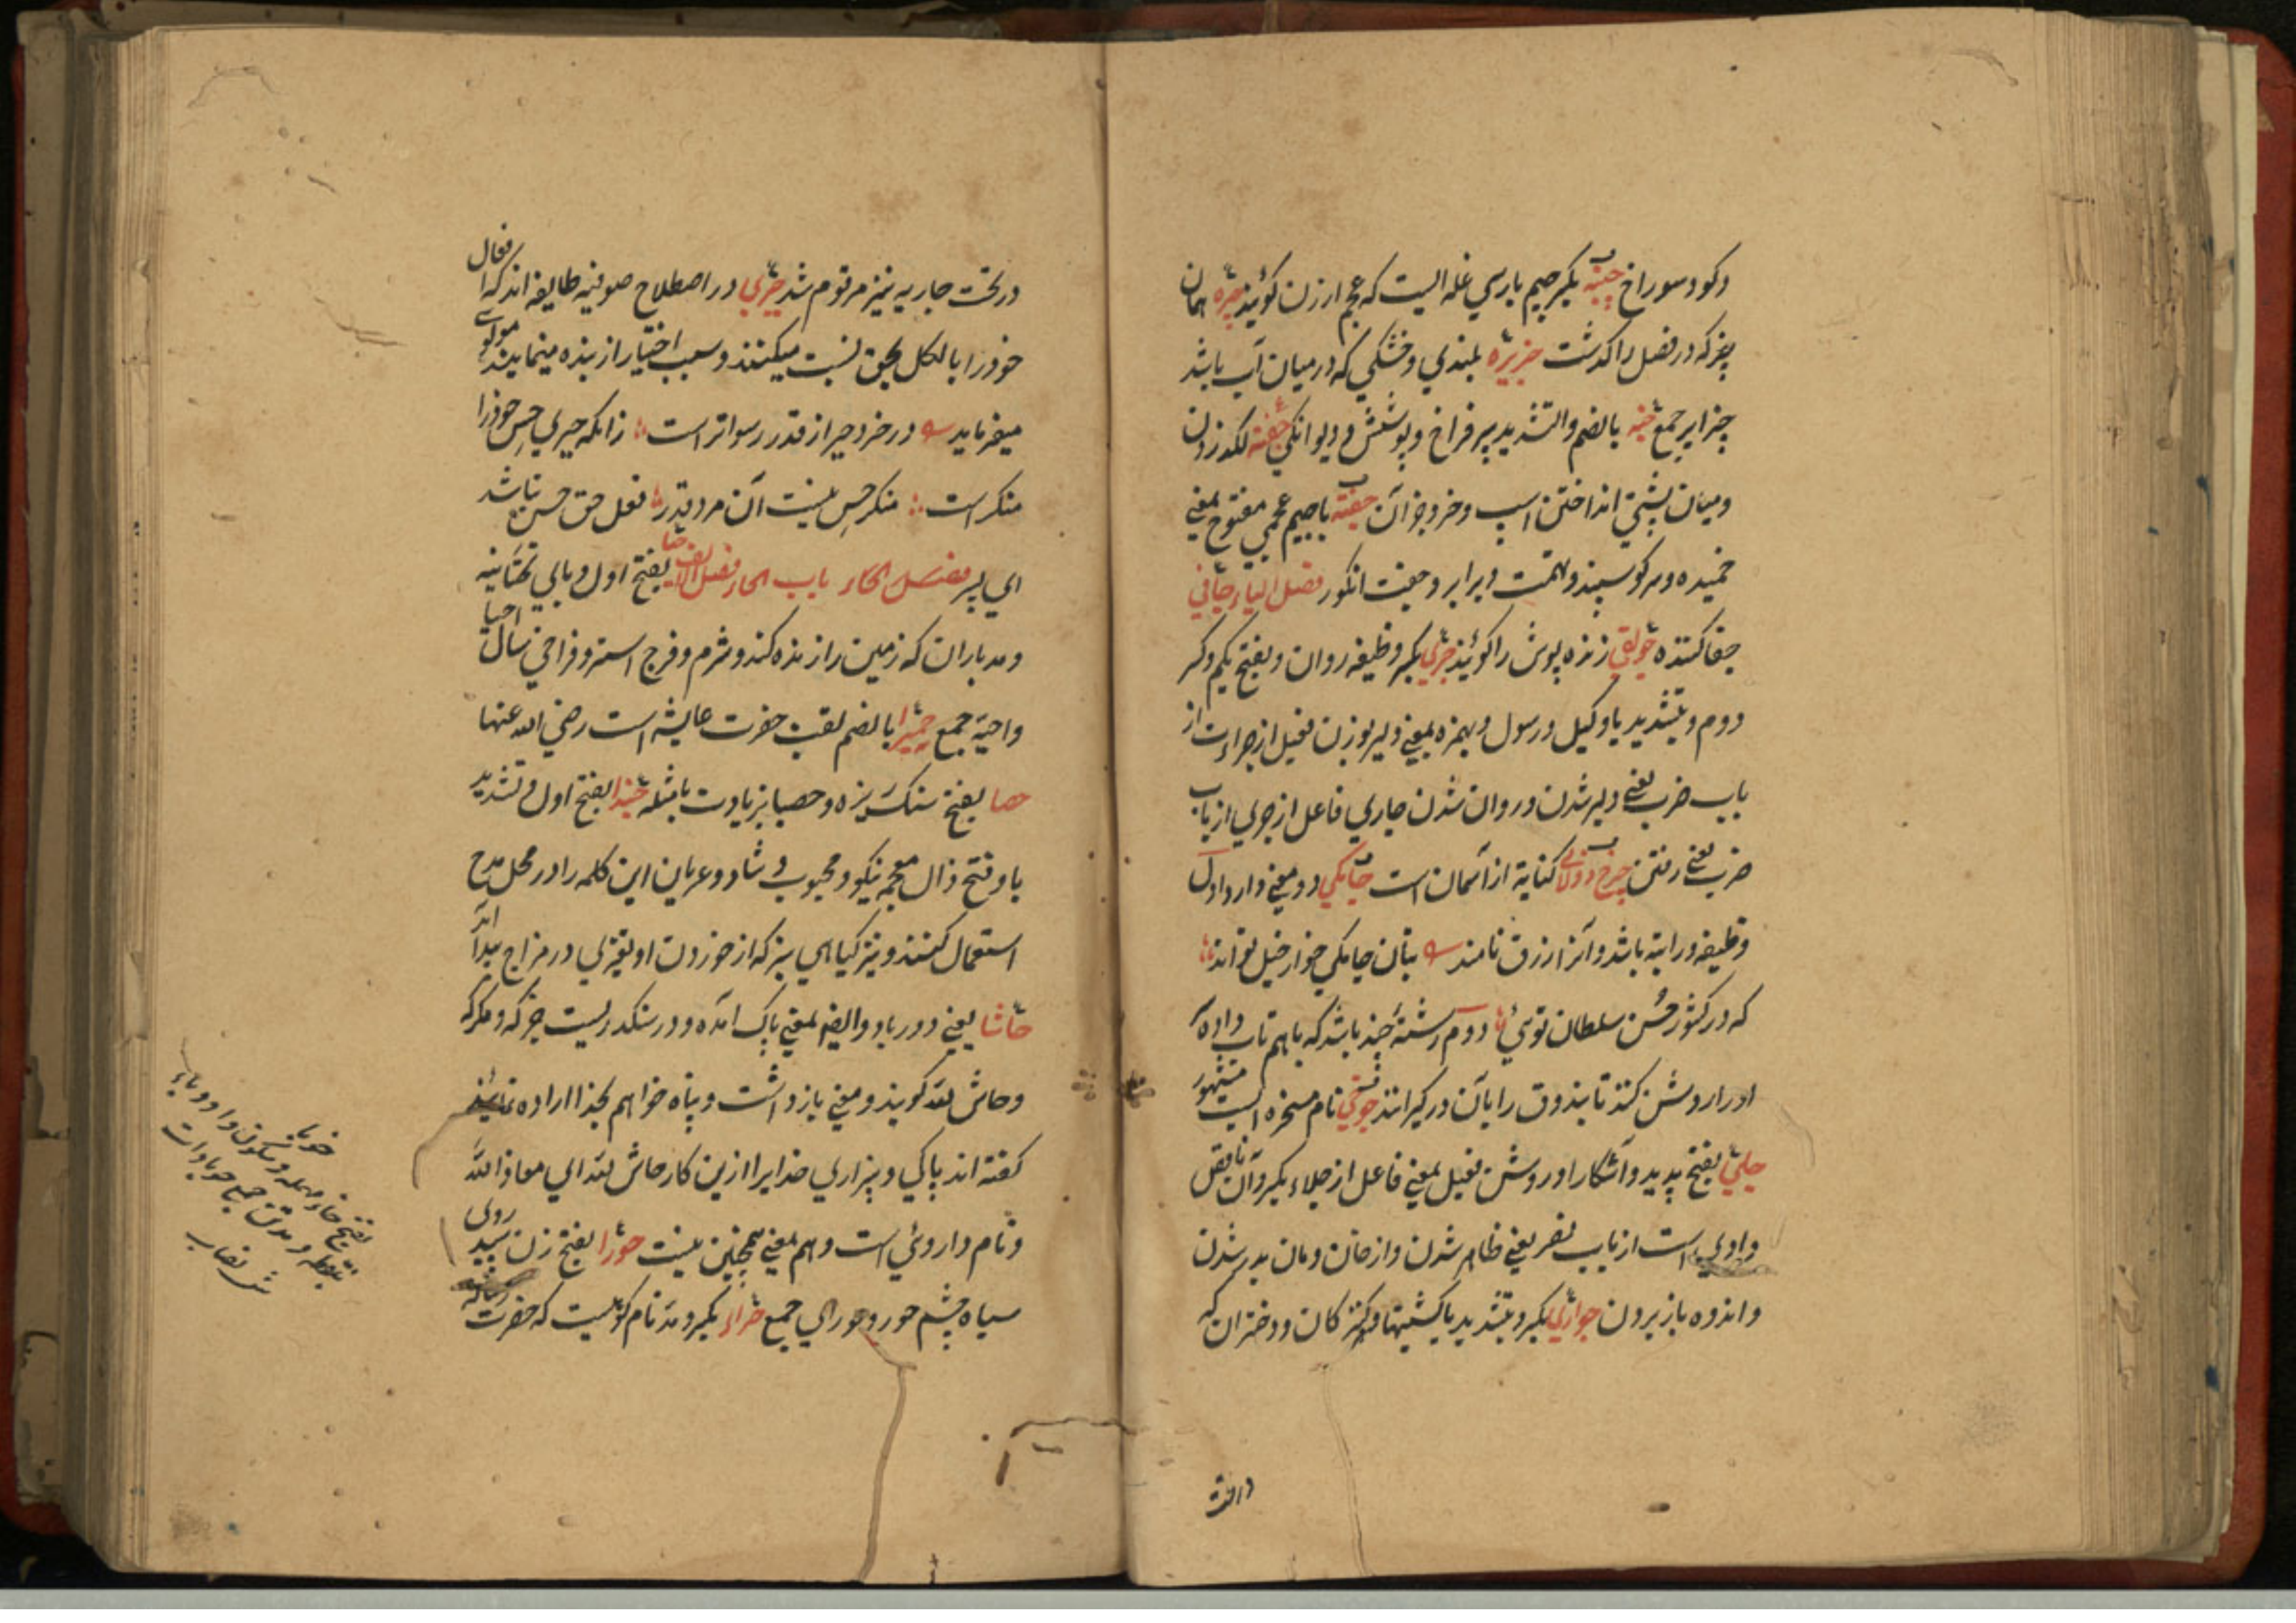 وکو وسوراخ چینه بکسر جیم پارسی غله ایست که عجم ارزن کویند جیره همان
چیز که در فصل را کذشت جزیره بلندی و خشکی که در میان آب باشد
جزایر جمع جنه بالضم والتشدید سپر فراخ و پوشش و دیوانکی جفته لکد زدن
ومیان پشتی انداختن اسپ و خر و جز آن چفته باجیم عجمی مفتوح بمعنی
خمیده و سر کوسپند و تهمت و برابر و جفت انکور فصل الیاء جانی
جفا کننده جولقی ژنده پوش را کویند جری بکسر وظیفه روان و بفتح یکم و کسر
دوم و بتشدید یا وکیل و رسول و بهمزه بمعنی دلیر بوزن فعیل از جراءت از
باب ضرب یعنی دلیر شدن و روان شدن جاری فاعل از جری از باب
ضرب یعنی رفتن چرخ دولابی کنایة از آسمان است جامکی دو معنی دارد اول
وظیفه و راتبه باشد و آنرا رزق نامند بتان جامکی خوار خیل تواند
که در کشور حسن سلطان توئی دوم رشتۀ چند باشد که باهم تاب داده
اورا روشن کنند تا بندوق را بآن درکیرانند جوحی نام مسخره ایست مشهور
جلی بفتح پدید و آشکارا و روشن فعیل بمعنی فاعل از جلاء بکسر و آن ناقص
واوی است از باب نصر یعنی ظاهر شدن و از خان و مان بدر شدن
و اندوه باز بردن جواری بکسر و بتشدید یا کشتیها و کنیزکان و دختران که
در تحت
در تحت جاریه نیز مرقوم شد جبری در اصطلاح صوفیه طایفه اند که افعال
خود را بالکل بحق نسبت میکنند و سلب اختیار از بنده مینمایند مولوی
میفرماید در خرد جبر از قدر رسواتر است زانکه جبری حس خود را
منکر است منکر حس نیست آن مرد قدر فعل حق حسی نباشد
ای پسر فصل الحاء باب الحاء فصل الالف حیا بفتح اول و یای تحتانیه
و مد باران که زمین را زنده کند و شرم و فرج استر و فراخی سال احیا
واحیة جمع حمیرا بالضم لقب حضرت عایشه است رضی الله عنها
حصا بفتح سنک ریزه و حصبا بزیادت با مثله حبذا بفتح اول و تشدید
با و فتح ذال معجمه نیکو و محبوب و شاد و عربان این کلمه را در محل مدح
استعمال کنند و نیز کیاهی نیز که از خوردن او تغیری در مزاج پیدا آید
حاشا یعنی دور باد و ایضا بمعنی پاک آمده و در سکندریست جز که و مکر که
وحاش لله کویند و معنی بازداشت و پناه خواهم بخدا اراده نمایند
کفته اند پاکی و بیزاری خدایرا ازین کار حاش لله ای معاذ الله
و نام داروئی است و هم بمعنی همچنین نیست حورا بفتح زن سپید روی
سیاه چشم حور و حورای جمع حراء بکسر و مد نام کوهیست که حضرت
حوبا
بفتح حاء مهمله و سکون واو و باء